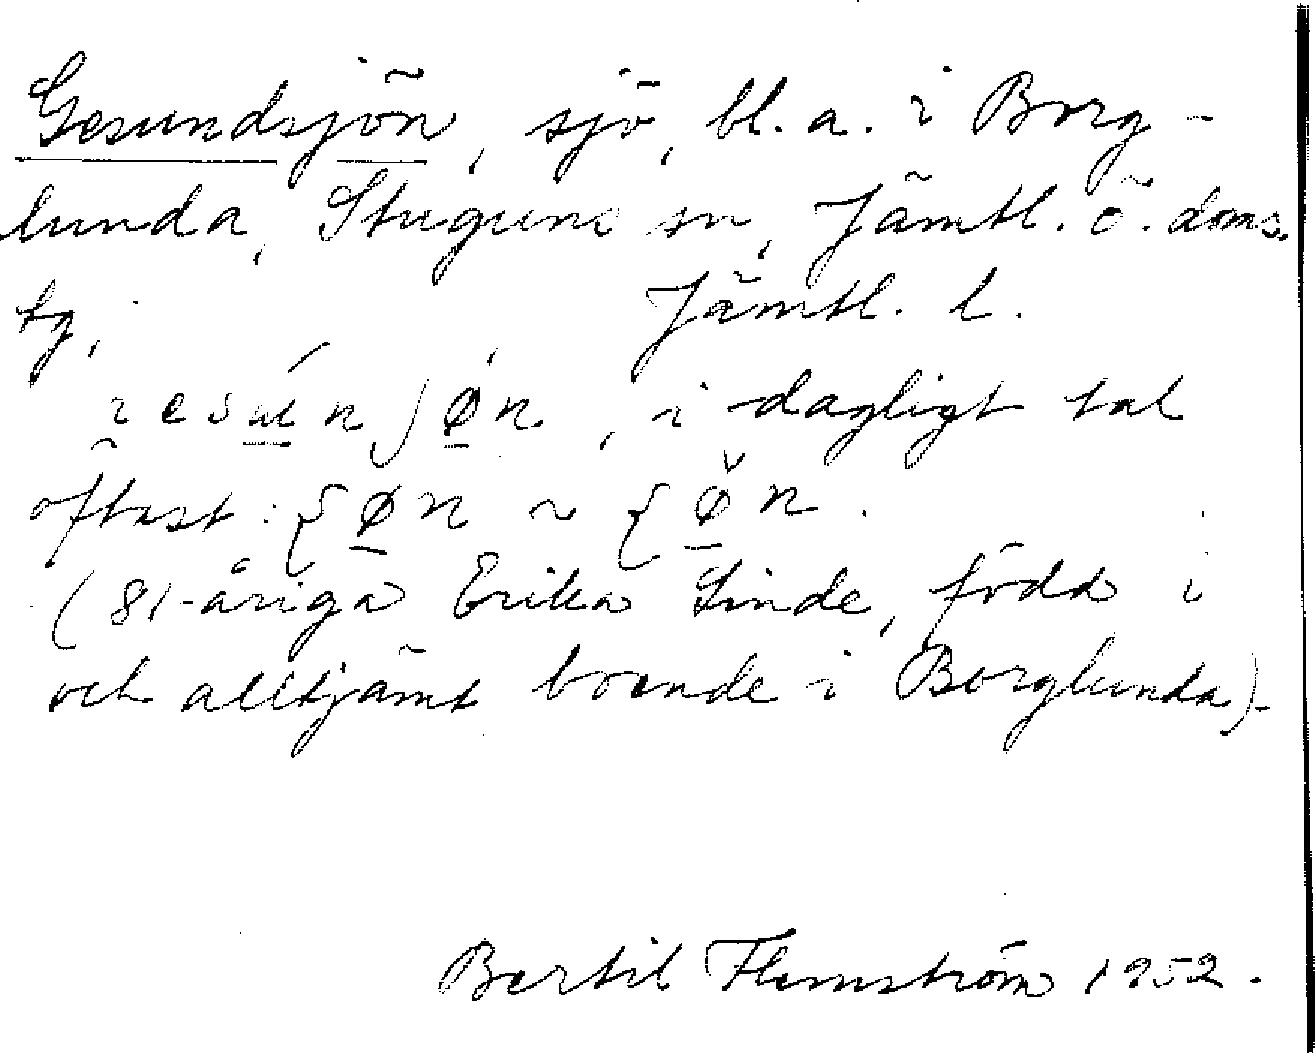 Gesundsjön, sjö, bl. a. i Borg-
lunda, Stuguns sn, Jämtl. ö. doms.
tg, Jämtl. l.
, i dagligt tal
oftast: ~
(81-åriga Erika Linde, född i
och alltjämt boende i Borglunda).
Bertil Flemström 1952.